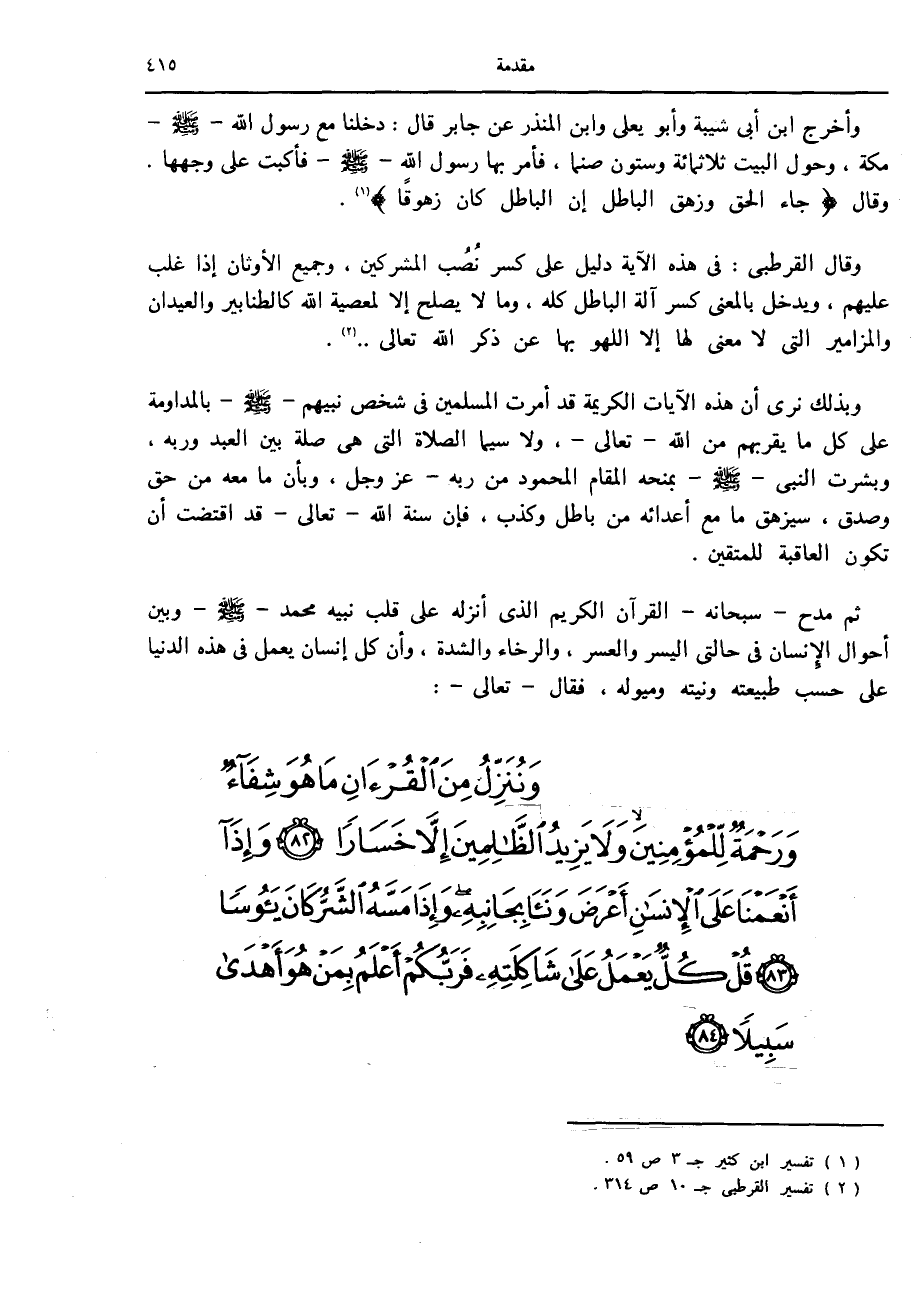 مقدمة ٤١٥
وأخرج ابن أبى شيبة وأبو يعلى وابن المنذر عن جابر قال : دخلنا مع رسول الله – ﷺ –
مكة ، وحول البيت ثلاثمائة وستون صنما ، فأمر بها رسول الله – ﷺ – فأكبت على وجهها .
وقال ﴿ جاء الحق وزهق الباطل إن الباطل كان زهوقًا ﴾(١) .
وقال القرطبى : فى هذه الآية دليل على كسر نُصُب المشركين ، وجميع الأوثان إذا غلب
عليهم ، ويدخل بالمعنى كسر آلة الباطل كله ، وما لا يصلح إلا لمعصية الله كالطنابير والعيدان
والمزامير التى لا معنى لها إلا اللهو بها عن ذكر الله تعالى ..(٢) .
وبذلك نرى أن هذه الآيات الكريمة قد أمرت المسلمين فى شخص نبيهم – ﷺ – بالمداومة
على كل ما يقربهم من الله – تعالى – ، ولا سيما الصلاة التى هى صلة بين العبد وربه ،
وبشرت النبى – ﷺ – بمنحه المقام المحمود من ربه – عز وجل ، وبأن ما معه من حق
وصدق ، سيزهق ما مع أعدائه من باطل وكذب ، فإن سنة الله – تعالى – قد اقتضت أن
تكون العاقبة للمتقين .
ثم مدح – سبحانه – القرآن الكريم الذى أنزله على قلب نبيه محمد – ﷺ – وبين
أحوال الإنسان فى حالتى اليسر والعسر ، والرخاء والشدة ، وأن كل إنسان يعمل فى هذه الدنيا
على حسب طبيعته ونيته وميوله ، فقال – تعالى – :
وَنُنَزِّلُ مِنَ ٱلْقُرْءَانِ مَا هُوَ شِفَآءٌ
وَرَحْمَةٌ لِّلْمُؤْمِنِينَ ۙ وَلَا يَزِيدُ ٱلظَّٰلِمِينَ إِلَّا خَسَارًا ﴿٨٢﴾ وَإِذَآ
أَنْعَمْنَا عَلَى ٱلْإِنسَٰنِ أَعْرَضَ وَنَـَٔا بِجَانِبِهِۦ ۖ وَإِذَا مَسَّهُ ٱلشَّرُّ كَانَ يَـُٔوسًا
﴿٨٣﴾ قُلْ كُلٌّ يَعْمَلُ عَلَىٰ شَاكِلَتِهِۦ فَرَبُّكُمْ أَعْلَمُ بِمَنْ هُوَ أَهْدَىٰ
سَبِيلًا ﴿٨٤﴾
( ١ ) تفسير ابن كثير جـ ٣ ص ٥٩ .
( ٢ ) تفسير القرطبى جـ ١٠ ص ٣١٤ .